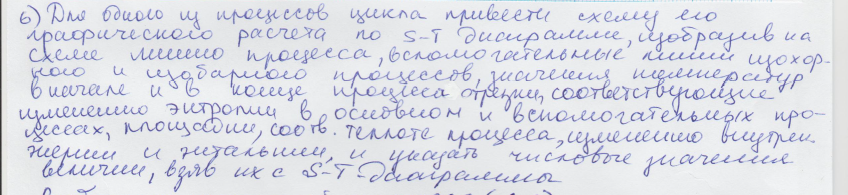 6) Для одного из процессов цикла привести схему его
графического расчета по S-T диаграмме, изобразив на
схеме линию процесса, вспомогательные линии изохор-
ного и изобарного процессов, значения температур
в начале и в конце процесса отрезки, соответствующие
изменению энтропии в основном и вспомогательных про-
цессах, площадки, соотв. теплоте процесса, изменению внутрен.
энергии и энтальпии, и указать числовые значения
величин, взяв их с S-T-диаграммы